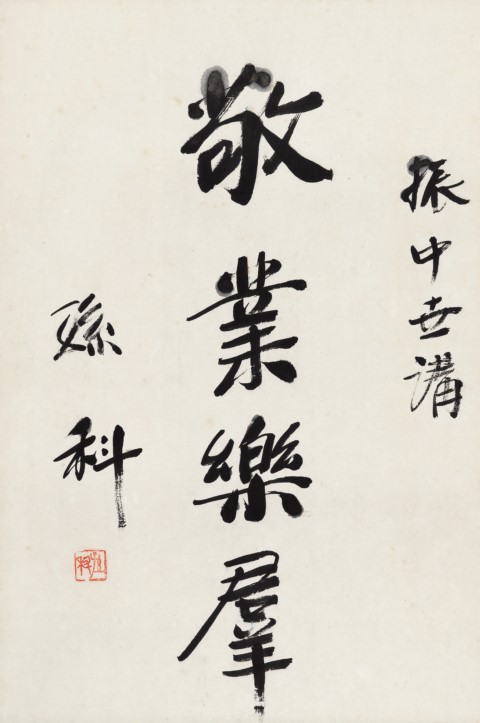 振中世講
敬業樂羣
孫科